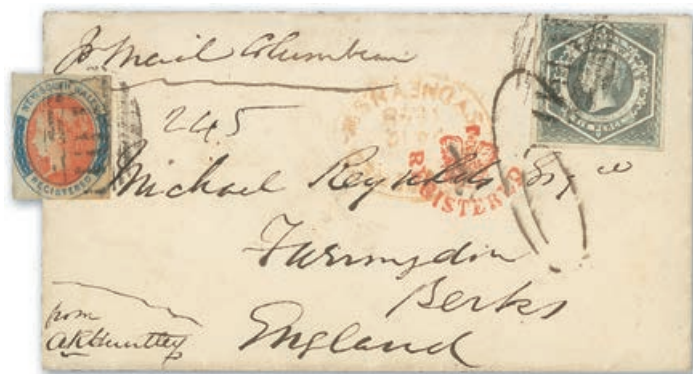 pr Mail Columbian
NEW SOUTH WALES
REGISTERED
245
SYDNEY
REGISTERED
Michael Reynolds Esqre
Farringdon
Berks
England
from
AKHuntley